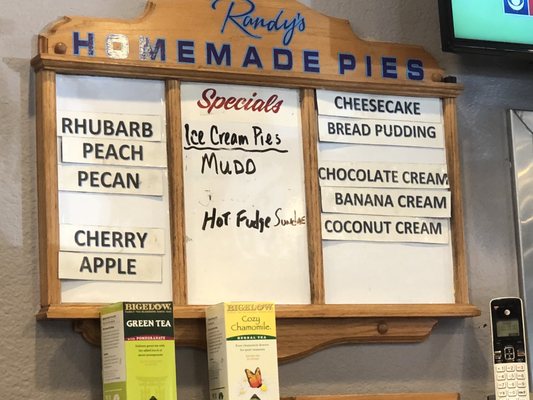 Randy's
HOMEMADE PIES
RHUBARB
PEACH
PECAN
CHERRY
APPLE
Specials
Ice Cream Pies
MUDD
Hot Fudge Sundae
CHEESECAKE
BREAD PUDDING
CHOCOLATE CREAM
BANANA CREAM
COCONUT CREAM
BIGELOW
GREEN TEA
with POMEGRANATE
BIGELOW
Cozy
Chamomile
HERBAL TEA